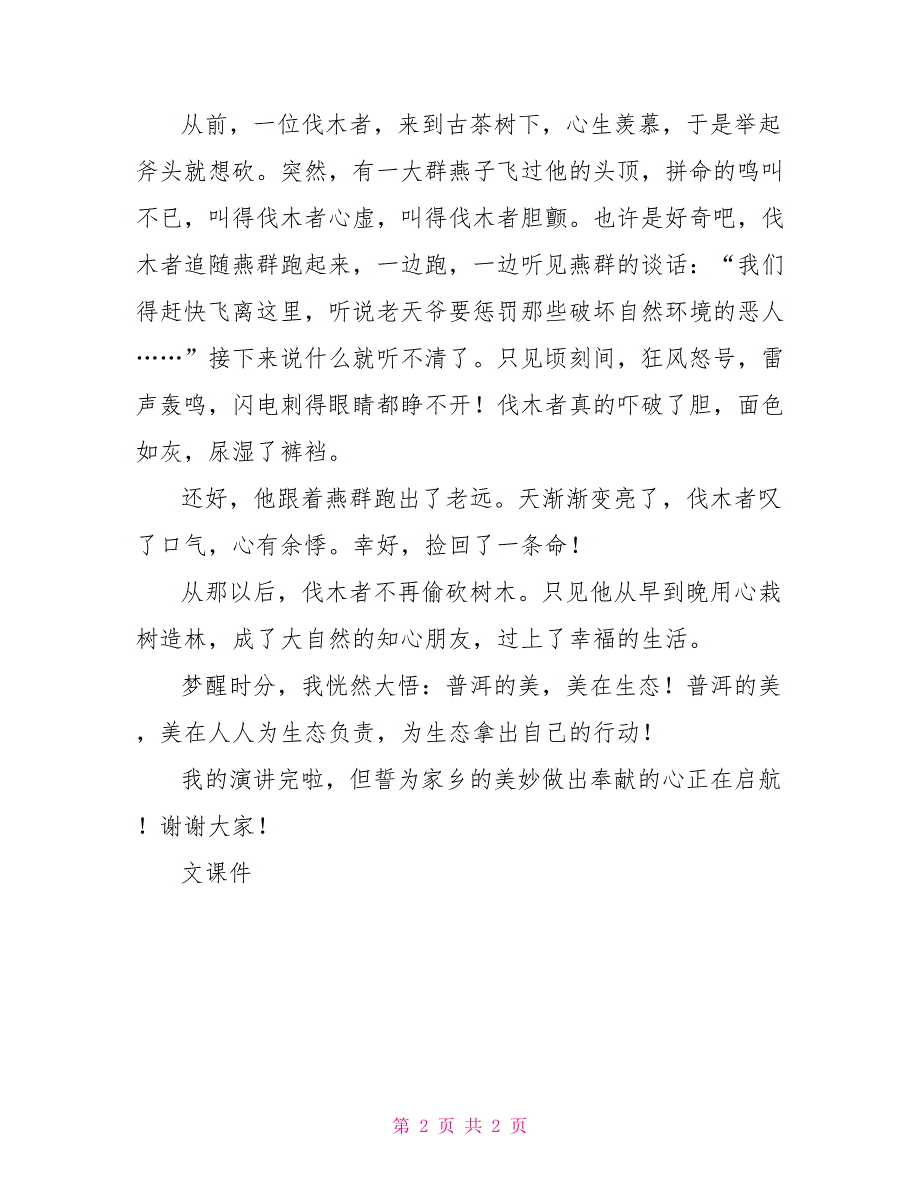 从前，一位伐木者，来到古茶树下，心生羡慕，于是举起
斧头就想砍。突然，有一大群燕子飞过他的头顶，拼命的鸣叫
不已，叫得伐木者心虚，叫得伐木者胆颤。也许是好奇吧，伐
木者追随燕群跑起来，一边跑，一边听见燕群的谈话：“我们
得赶快飞离这里，听说老天爷要惩罚那些破坏自然环境的恶人
……”接下来说什么就听不清了。只见顷刻间，狂风怒号，雷
声轰鸣，闪电刺得眼睛都睁不开！伐木者真的吓破了胆，面色
如灰，尿湿了裤裆。
还好，他跟着燕群跑出了老远。天渐渐变亮了，伐木者叹
了口气，心有余悸。幸好，捡回了一条命！
从那以后，伐木者不再偷砍树木。只见他从早到晚用心栽
树造林，成了大自然的知心朋友，过上了幸福的生活。
梦醒时分，我恍然大悟：普洱的美，美在生态！普洱的美
，美在人人为生态负责，为生态拿出自己的行动！
我的演讲完啦，但誓为家乡的美妙做出奉献的心正在启航
！谢谢大家！
文课件
第 2 页 共 2 页